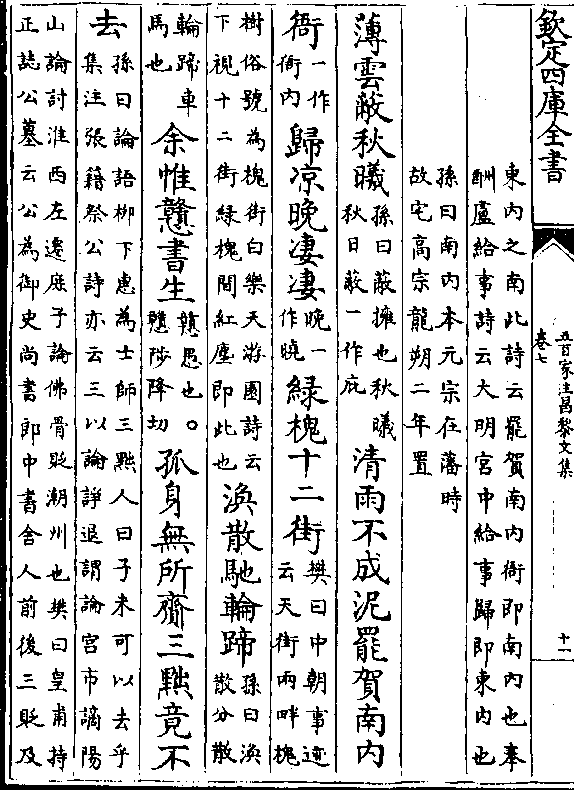 欽定四庫全書
五百家注昌黎文集
卷七
十一
東内之南此詩云罷賀南内衙即南内也奉
酬盧給事詩云大明宮中給事歸即東内也
孫曰南内本元宗在藩時
故宅高宗龍朔二年置
薄雲蔽秋曦孫曰蔽擁也秋曦秋日蔽一作庇清雨不成泥罷賀南内
衙一作衙内歸凉晚凄凄晚一作曉緑槐十二街樊曰中朝事迹云天街兩畔槐
樹俗號為槐街白樂天游園詩云下視十二街緑槐間紅塵即此也渙散馳輪蹄孫曰渙散分散
輪蹄車馬也余惟戇書生戇愚也。戇陟降切孤身無所齎三黜竟不
去孫曰論語柳下惠為士師三黜人曰子未可以去乎集注張籍祭公詩亦云三以論諍退謂論宮市謫陽
山論討淮西左遷庶子論佛骨貶潮州也樊曰皇甫持
正誌公墓云公為御史尚書郎中書舍人前後三貶及